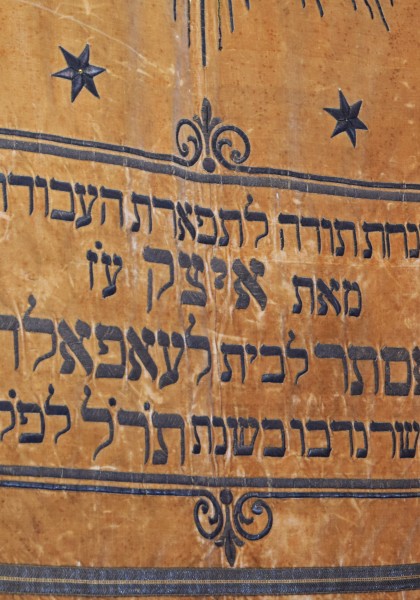 נחת תודה לתפארת העבודה
מאת איצק ע״ז
אסתר לבית לעאפאלד
שר נדבו בשנת תרל לפק